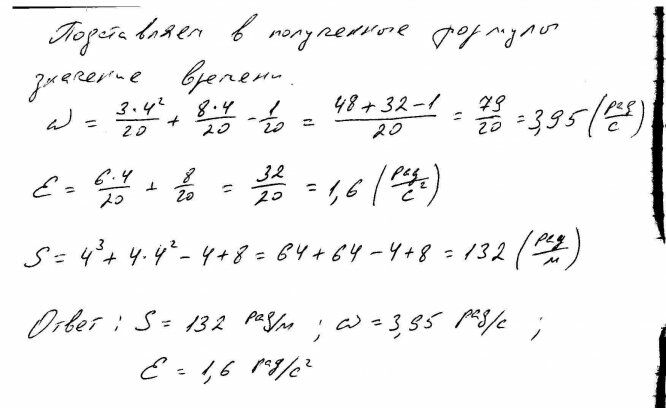 Подставляем в полученные формулы
значение времени.
ω = 3·4²/20 + 8·4/20 - 1/20 = (48+32-1)/20 = 79/20 = 3,95 (рад/с)
ε = 6·4/20 + 8/20 = 32/20 = 1,6 (рад/с²)
S = 4³ + 4·4² - 4 + 8 = 64 + 64 - 4 + 8 = 132 (рад/м)
Ответ: S = 132 рад/м ; ω = 3,95 рад/с ;
ε = 1,6 рад/с²